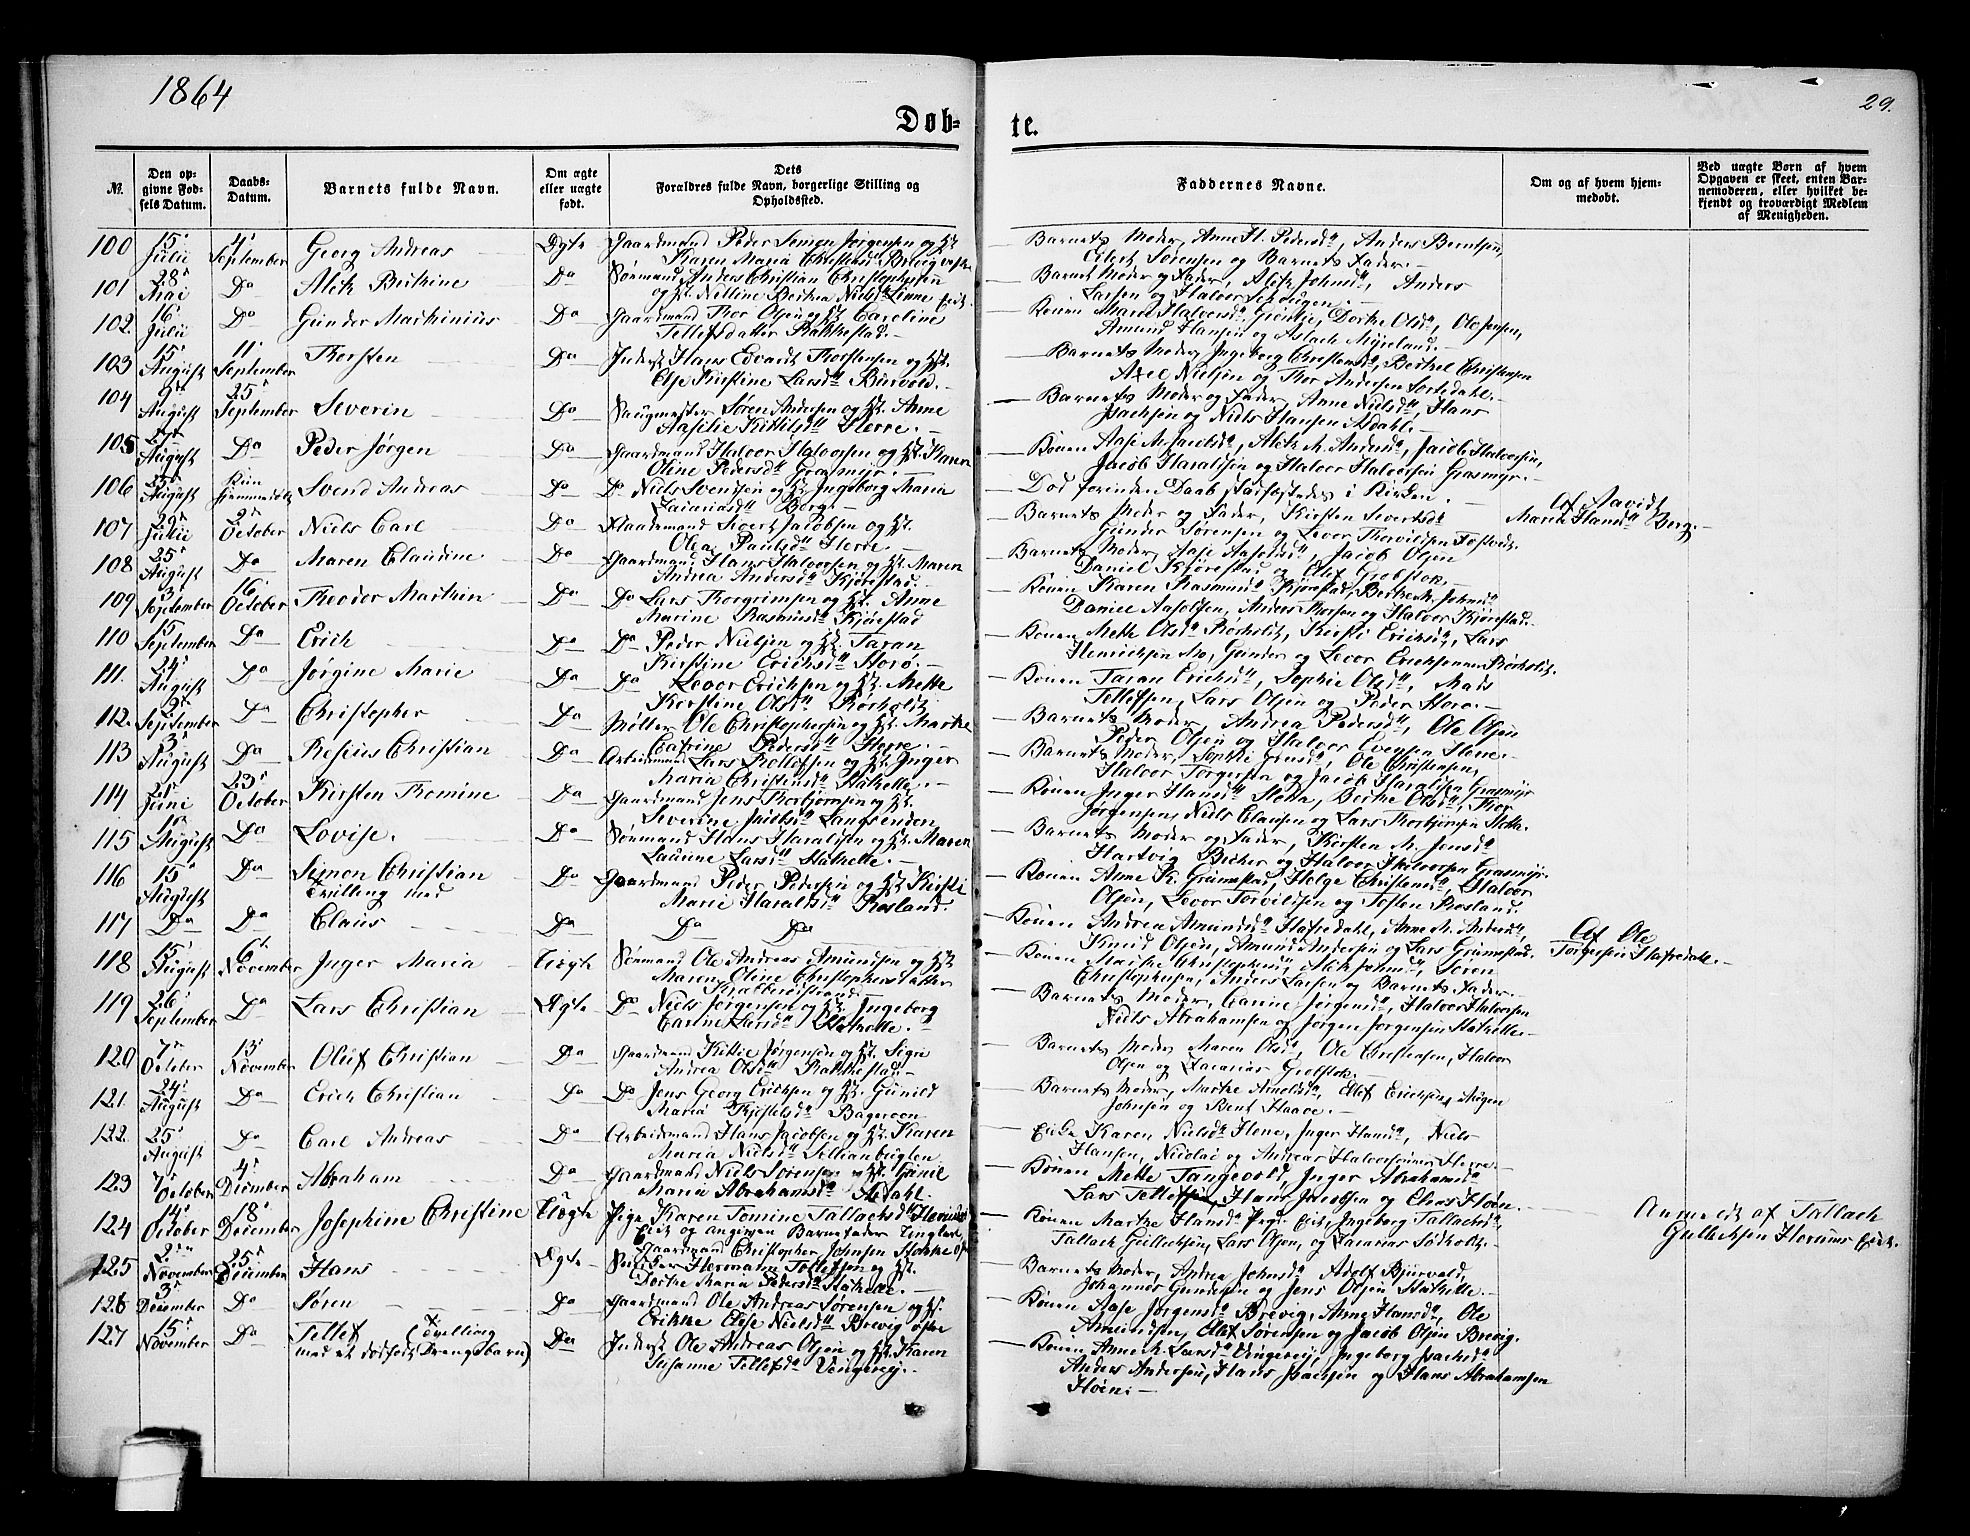 1864
29.
Døb-
te.
№.
Den op-
givne Fød-
sels Datum.
Daabs-
Datum.
Barnets fulde Navn.
Om ægte
eller uægte
født.
Dets
Forældres fulde Navn, borgerlige Stilling og
Opholdssted.
Faddernes Navne.
Om og af hvem hjem-
medøbt.
Ved uægte Børn af hvem
Opgaven er skeet, enten Bar-
nemoderen, eller hvilket be-
kjendt og troværdigt Medlem
af Menigheden.
100 15 Juli 4 September Georg Andreas Ægte Gaardmand Peder Simon Jørgensen og
Karen Maria Christensd Brevig
Barnets Moder, Anne H. Pedersd, Anders Berntsen,
Eilert Sørensen og Barnets Fader.
101 28 Mai Do Do Sømand Anders Christian Christophersen
Barnets Moder og Fader, Johnsd, Anders
Larsen og Halvor
102 16 Juli Do Gunder Marthinius Do Gaardmand Thor Olsen og Caroline
Tellefsdatter Rakkestad.
Konen Maren Halvorsd, Dorthe Olsd, Ole Jensen,
Amund Hansen og Aslack
103 15 August 11 September Thorsten Do Inderst Hans Edvardt Thorstensen og
Else Kirstine Larsd Burvold.
Barnets Moder, Ingeborg Christensd, Berthel Christensen
Axel Nielsen og Thor Andersen
104 9 August 25 September Severin Do Saugmester Søren Andersen og Anne
Aaselie Kittilsd Herre.
Barnets Moder og Fader, Anne Nielsd, Hans
Isachsen og Niels Hansen Asdahl.
105 27 August Do Peder Jørgen Do Gaardmand Halvor Halvorsen og Karen
Oline Pedersd Grasmyr.
Konen Aase M. Jacobsd, Andersd, Jacob Halvorsen,
Jacob Haraldsen og Halvor Halvorsen Grasmyr.
106 25 August Kun hjemmedøbt Svend Andreas Do Do Niels Svendsen og Ingeborg Maria
Zacariasd Berg.
Død forinden Daab stadfæstedes i Kirken. Af
Maren Hansd Berg.
107 29 Juli 2 October Niels Carl Do Gaardmand Sivert Jacobsen og
Olea Paulsd Herre
Barnets Moder og Fader, Kirsten Sivertsd
Gunder Sørensen og Levor Thorvildsen
108 25 August Do Maren Claudine Do Gaardmand Hans Halvorsen og Maren
Andrea Andersd Kjørestad.
Barnets Moder, Aase Aasoldsd, Jacob Olsen
Daniel Kjørestad og Ellef Grobstok.
109 3 September 16 October Theodor Marthin Do Do Lars Thorgrimsen og Anne
Marine Rasmusd Kjørestad
Konen Karen Rasmusd Kjørestad, Berthe M. Johnsd
Daniel Aasoldsen, Anders Thorsen og Halvor Kjørestad.
110 15 September Do Erich Do Do Peder Nielsen og Taran
Kirstine Erichsd Horø.
Konen Mette Olsd Rørholdt, Kirsti Erichsd, Lars
Henrichsen Mo, Gunder og Levor Erichsen Rørholdt.
111. 24 August Do Jørgine Marie Do Do Levor Erichsen og Mette
Kirstine Olsd Rørholdt
Konen Taran Erichsd, Sophie Olsd, Mads
Tellefsen, Lars Olsen og Peder Horø.
112. September Do Christopher Do Møller Ole Christophersen og Marthe
Catrine Pedersd Herre.
Barnets Moder, Andrea Pedersd, Ole Olsen
Peder Olsen og Halvor Evensen Herre.
113 3 August Do Rasius Christian Do Arbeidsmand Lars Rollefsen og Inger
Maria Christensd Stathelle.
Barnets Moder, Sophie Jensd, Ole Christensen,
Halvor Torgersen og Jacob Haraldsen Grasmyr
114 21 Juni 23 October Kirsten Thomine Do Gaardmand Jens Thorbjørnsen og
Severine Jacobsd Langrønden
Konen Inger Hansd Stokke, Berthe Olsd, Thor
Jørgensen, Niels Clausen og Lars Thorbjørnsen Stokke.
115 15 August Do Lovise. Do Sømand Hans Haraldsen og Maren
Laurine Larsd Stathelle.
Barnets Moder og Fader, Kirsten M. Jensd
Hartvig Becker og Halvor Halvorsen Grasmyr.
116 15 August Do Simon Christian Do Gaardmand Peder Pedersen og Kirsti
Tvilling med Marie Haraldsd Rosland.
Konen Anne K. Grumestad, Helge Christensd, Halvor
Olsen, Levor Torvildsen og Tosten Rosland.
117 Do Do Claus Do Do Do
Konen Andrea Amundsd Hafredahl, Anne M. Andersd, Af Ole
Knud Olsen, Amund Andersen og Lars Grumestad. Torgersen Hafredahl.
118 15 August 6 November Inger Maria Uægte Sømand Ole Andreas Amundsen og
Maren Oline Christophersdatter
Konen Marthe Christophersd, Johnsd, Søren
Christophersen, Anders Larsen og Barnets Fader.
119 26 September Do Lars Christian Ægte Do Niels Jørgensen og Ingeborg
Carine Larsd Stathelle.
Barnets Moder, Carine Jørgensd, Halvor Halvorsen
Niels Abrahamsen og Jørgen Jørgensen Stathelle.
120 7 October 13 November Oluf Christian Do Gaardmand Kittil Jørgensen og Sigri
Andrea Olsd Rakkestad.
Barnets Moder Maren Olsd, Ole Christensen, Halvor
Olsen og Zacarias Grobstok.
121 24 August Do Erich Christian Do Do Jens Georg Erichsen og Gunild
Maria Kjøstelsd Bageroen
Barnets Moder, Marthe Arnoldsd, Ellef Erichsen, Mogen
Johnsen og Bent Haave.
122. 25 August Do Carl Andreas Do Arbeidsmand Hans Jacobsen og Karen
Maria Nielsd
Enke Karen Nielsd Herre, Inger Hansd, Niels
Hansen, Nicolai og Andreas Halvorsønner Herre.
123 7 October 4 December Abraham Do Gaardmand Niels Sørensen og
Maria Abrahamsd Asdahl.
Konen Mette Tangevold, Inger Abrahamsd
Lars Tellefsen, Hans Jacobsen og Claus Høen.
124 14 October 18 December Josephine Christine Uægte Pige Karen Tomine Tallachsd
Eiet og angiven Barnefader Ungkarl
Gaardmand Christopher Johnsen Stokke
Konen Marthe Hansd Eiet, Ingeborg Tallachsd, Anmeldt af Tallack
Tallack Gullichsen, Lars Olsen, og Zacarias Rørholdt. Gullichsen
125 2 November 25 December Hans Ægte Herman Tollefsen og
Dorthe Maria Pedersd Stathelle.
Barnets Moder, Andrea Johnsd, Adolf Bjørvald,
Johannes Gundersen og Jens Olsen Stathelle.
126 3 December Do Søren Do Gaardmand Ole Andreas Sørensen og
Erikke Else Nielsd Brevig
Konen Aase Jørgensd Brevig, Anne Hansd, Ole
Amundsen, Ellef Sørensen og Jacob Olsen Brevig.
127 15 November Do Tellef (Tvilling Do Inderst Ole Andreas Olsen og Karen
med et dødfødt Drengebarn) Susanne Tellefsd Vingerej.
Konen Anne K. Larsd Vingerej, Ingeborg Isachsd
Anders Andersen, Hans Isachsen og Hans Abrahamsen
Høen.